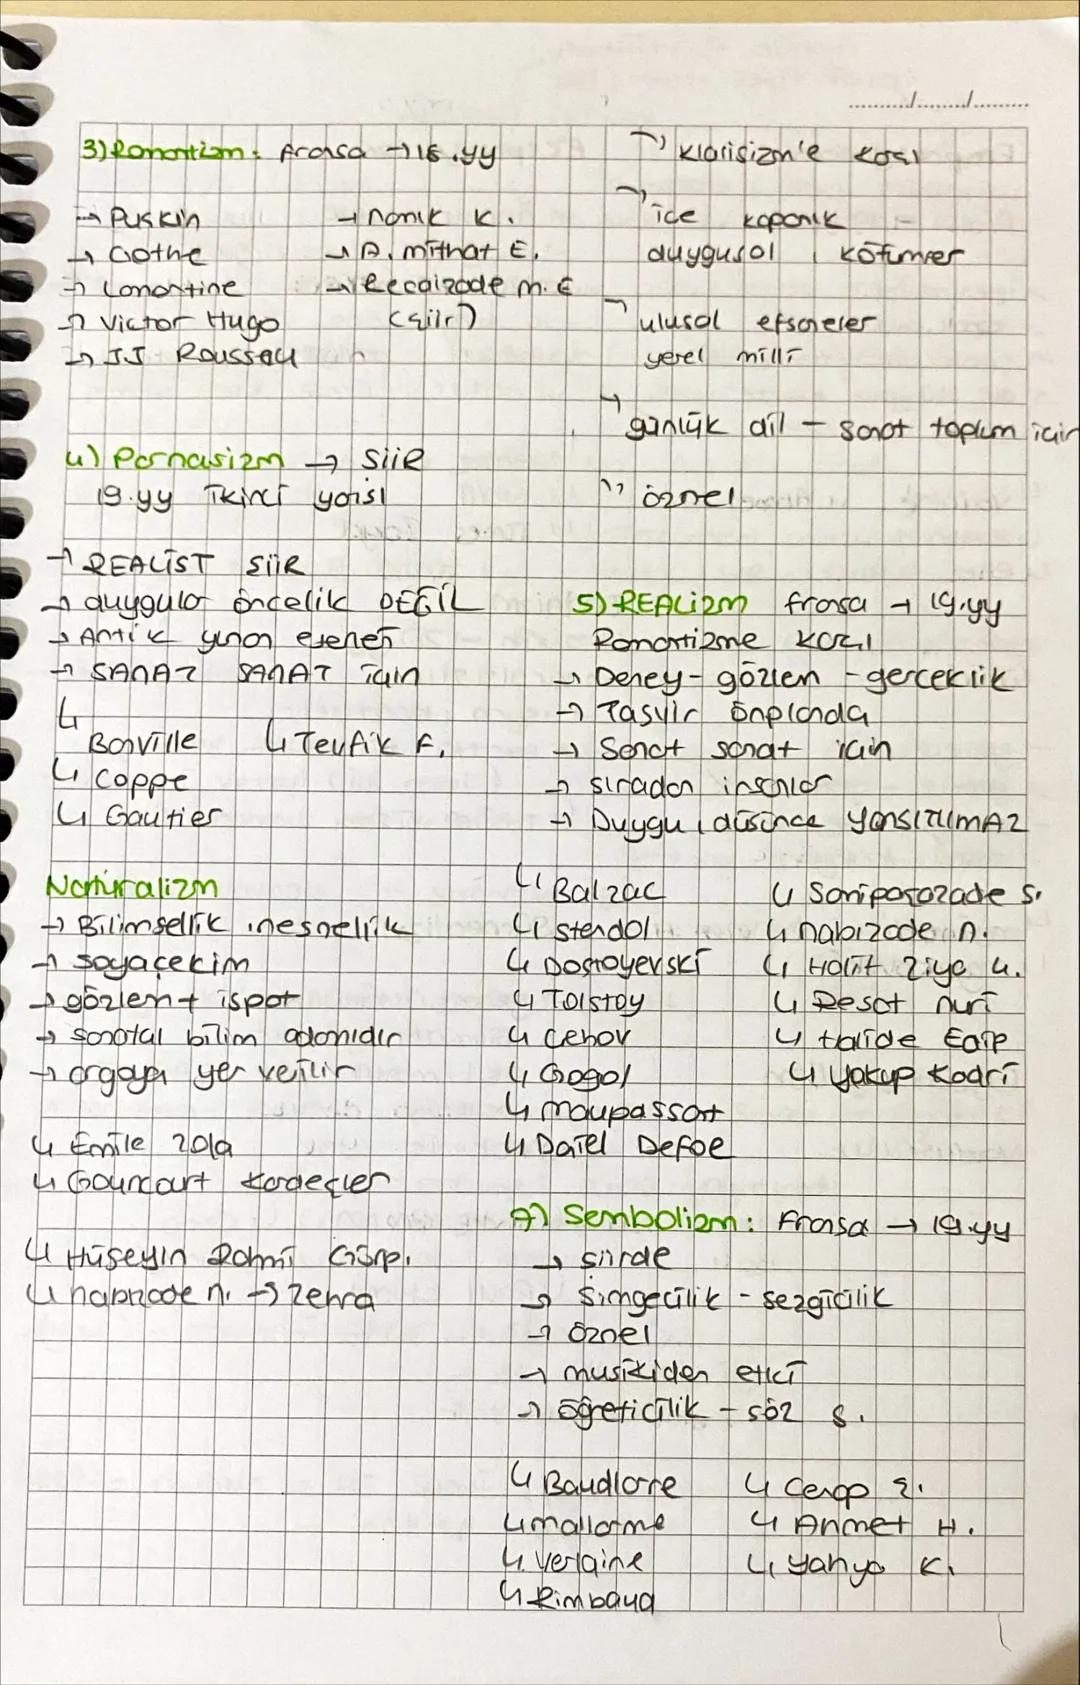 3) Romantizm : Fransa → 18.yy
→ Puşkin
→ Göthe
→ Lamartine
→ Victor Hugo
→ J.J Roussau
→ Namık K.
→ A. Mithat E.
→ Recaizade M. E
(şiir)
→ Klasisizm'e karşı
→ içe kapanık
duygusal , kötümser
→ ulusal efsaneler
yerel milli
→ günlük dil – Sanat toplum için
→ öznel
4) Parnasizm → ŞİİR
19.yy ikinci yarısı
→ REALİST ŞİİR
→ duygular öncelik DEĞİL
→ Antik yunan
→ SANAT SANAT için
↳ Banville
↳ Coppe
↳ Gautier
↳ Tevfik F.
5) REALizm fransa → 19.yy
Romantizme karşı
→ Deney - gözlem - gerçeklik
→ Tasvir önplanda
→ Sanat sanat için
→ sıradan insanlar
→ Duygu , düşünce YANSITILMAZ
↳ Balzac
↳ Stendal
↳ Dostoyevski
↳ Tolstoy
↳ Çehov
↳ Gogol
↳ Maupassant
↳ Daniel Defoe
↳ Samipaşazade S.
↳ Nabizade N.
↳ Halit Ziya U.
↳ Reşat Nuri
↳ Halide Edip
↳ Yakup Kadri
Natüralizm
→ Bilimsellik , nesnellik
→ soyaçekim
→ gözlem + ispat
→ sanatçı bilim adamıdır
→ argoya yer verilir
↳ Emile Zola
↳ Gouncourt kardeşler
↳ Hüseyin Rahmi Gürp.
↳ Nabizade N. → Zehra
7) Sembolizm : Fransa → 19.yy
→ şiirde
→ Simgecilik - sezgicilik
→ öznel
→ musikiden etki
→ öğreticilik – söz s.
↳ Baudlaire
↳ Mallarme
↳ Verlaine
↳ Rimbaud
↳ Cenap Ş.
↳ Ahmet H.
↳ Yahya K.